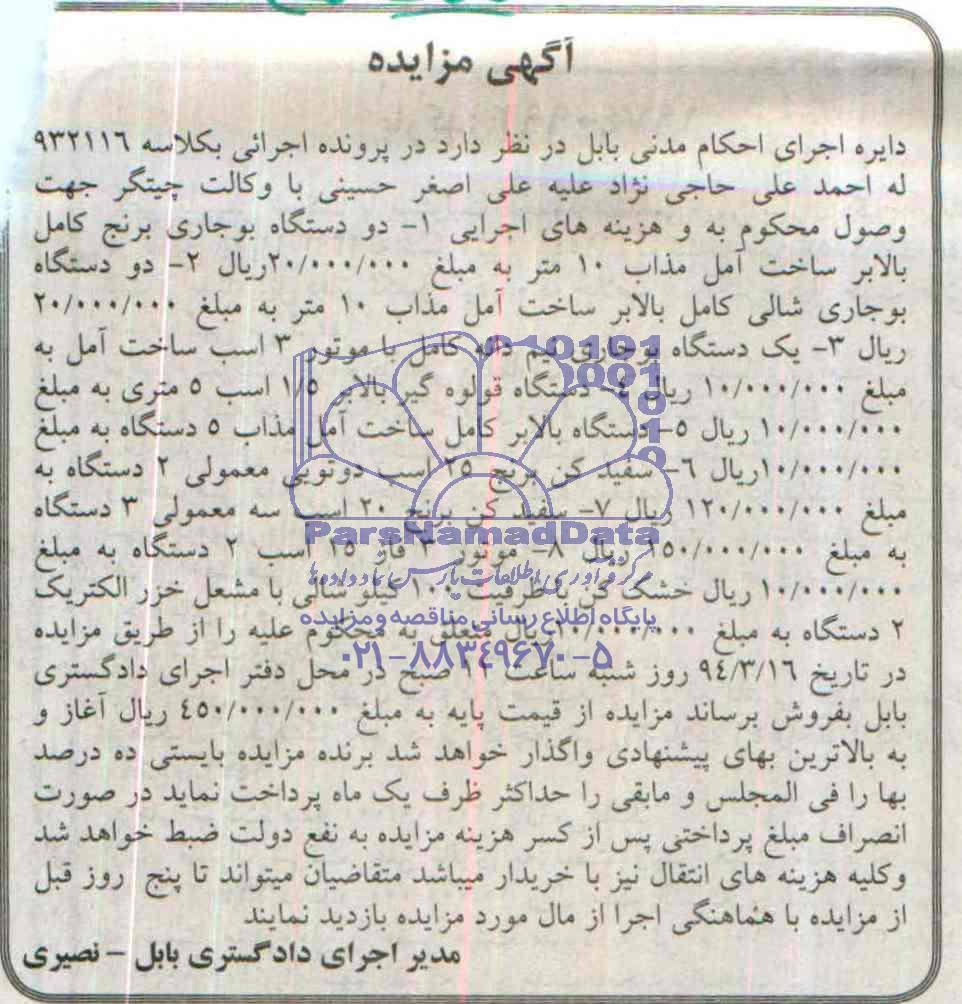 آگهی مزایده
دایره اجرای احکام مدنی بابل در نظر دارد در پرونده اجرائی بکلاسه ۹۳۲۱۱٦
له احمد علی حاجی نژاد علیه علی اصغر حسینی با وکالت چیتگر جهت
وصول محکوم به و هزینه های اجرایی ۱- دو دستگاه بوجاری برنج کامل
بالابر ساخت آمل مذاب ۱۰ متر به مبلغ ۲۰/۰۰۰/۰۰۰ریال ۲- دو دستگاه
بوجاری شالی کامل بالابر ساخت آمل مذاب ۱۰ متر به مبلغ ۲۰/۰۰۰/۰۰۰
ریال ۳- یک دستگاه بوجاری نیم دانه کامل با موتور ۳ اسب ساخت آمل به
مبلغ ۱۰/۰۰۰/۰۰۰ ریال ٤- دستگاه قولوه گیر بالابر ۱/۵ اسب ۵ متری به مبلغ
۱۰/۰۰۰/۰۰۰ ریال ۵- دستگاه بالابر کامل ساخت آمل مذاب ۵ دستگاه به مبلغ
۱۰/۰۰۰/۰۰۰ریال ٦- سفید کن برنج ۲۵ اسب دوتویی معمولی ۲ دستگاه به
مبلغ ۱۲۰/۰۰۰/۰۰۰ ریال ۷- سفید کن برنج ۲۰ اسب سه معمولی ۳ دستگاه
به مبلغ ۱۵۰/۰۰۰/۰۰۰ ریال ۸- موتور ۳ فاز ۲۵ اسب ۲ دستگاه به مبلغ
۱۰/۰۰۰/۰۰۰ ریال خشک کن با ظرفیت کیلو شالی با مشعل خزر الکتریک
۲ دستگاه به مبلغ ریال متعلق به محکوم علیه را از طریق مزایده
در تاریخ ۹٤/۳/۱٦ روز شنبه ساعت ۱۱ صبح در محل دفتر اجرای دادگستری
بابل بفروش برساند مزایده از قیمت پایه به مبلغ ٤۵۰/۰۰۰/۰۰۰ ریال آغاز و
به بالاترین بهای پیشنهادی واگذار خواهد شد برنده مزایده بایستی ده درصد
بها را فی المجلس و مابقی را حداکثر ظرف یک ماه پرداخت نماید در صورت
انصراف مبلغ پرداختی پس از کسر هزینه مزایده به نفع دولت ضبط خواهد شد
وکلیه هزینه های انتقال نیز با خریدار میباشد متقاضیان میتواند تا پنج روز قبل
از مزایده با هماهنگی اجرا از مال مورد مزایده بازدید نمایند
مدیر اجرای دادگستری بابل - نصیری
ParsNamadData
مرکز فرآوری اطلاعات پارس نماد داده ها
پایگاه اطلاع رسانی مناقصه و مزایده
۰۲۱-۸۸۳۴۹۶۷۰-۵